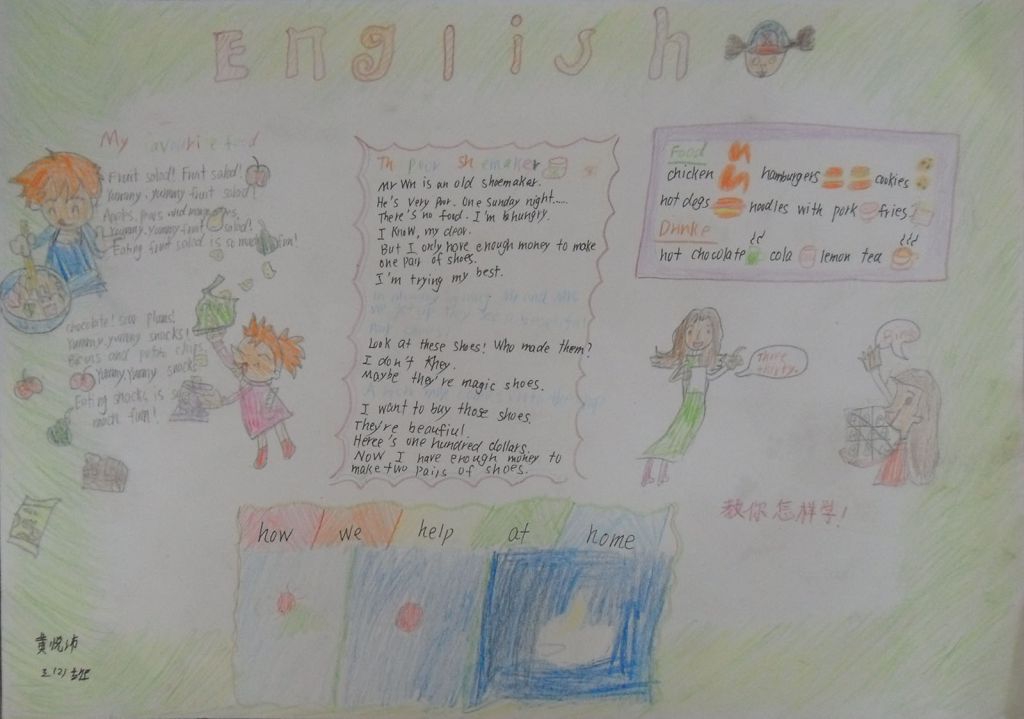 English
My favourite food
Fruit salad! Fruit salad!
Yummy, yummy fruit salad!
Apples, pears and
Yummy, yummy fruit salad!
Eating fruit salad is so much fun!
chocolate! plums!
Yummy, yummy snacks!
and potato chips
Yummy, Yummy snacks
Eating snacks is so
much fun!
The poor shoemaker
Mr Wn is an old shoemaker.
He's very poor. One sunday night......
There's no food. I'm hungry.
I know, my dear.
But I only have enough money to make
one pair of shoes.
I'm trying my best.
Look at these shoes! Who made them?
I don't they.
Maybe they're magic shoes.
I want to buy those shoes.
They're beaufiul.
Heree's one hundred dollars.
Now I have enough money to
make two pairs of shoes.
Food
chicken hamburgers cookies
hot dogs noodles with pork fries
Drinke
hot chocolate cola lemon tea
Three
thirty.
教你怎样学!
how we help at home
黄悦
三(2)班